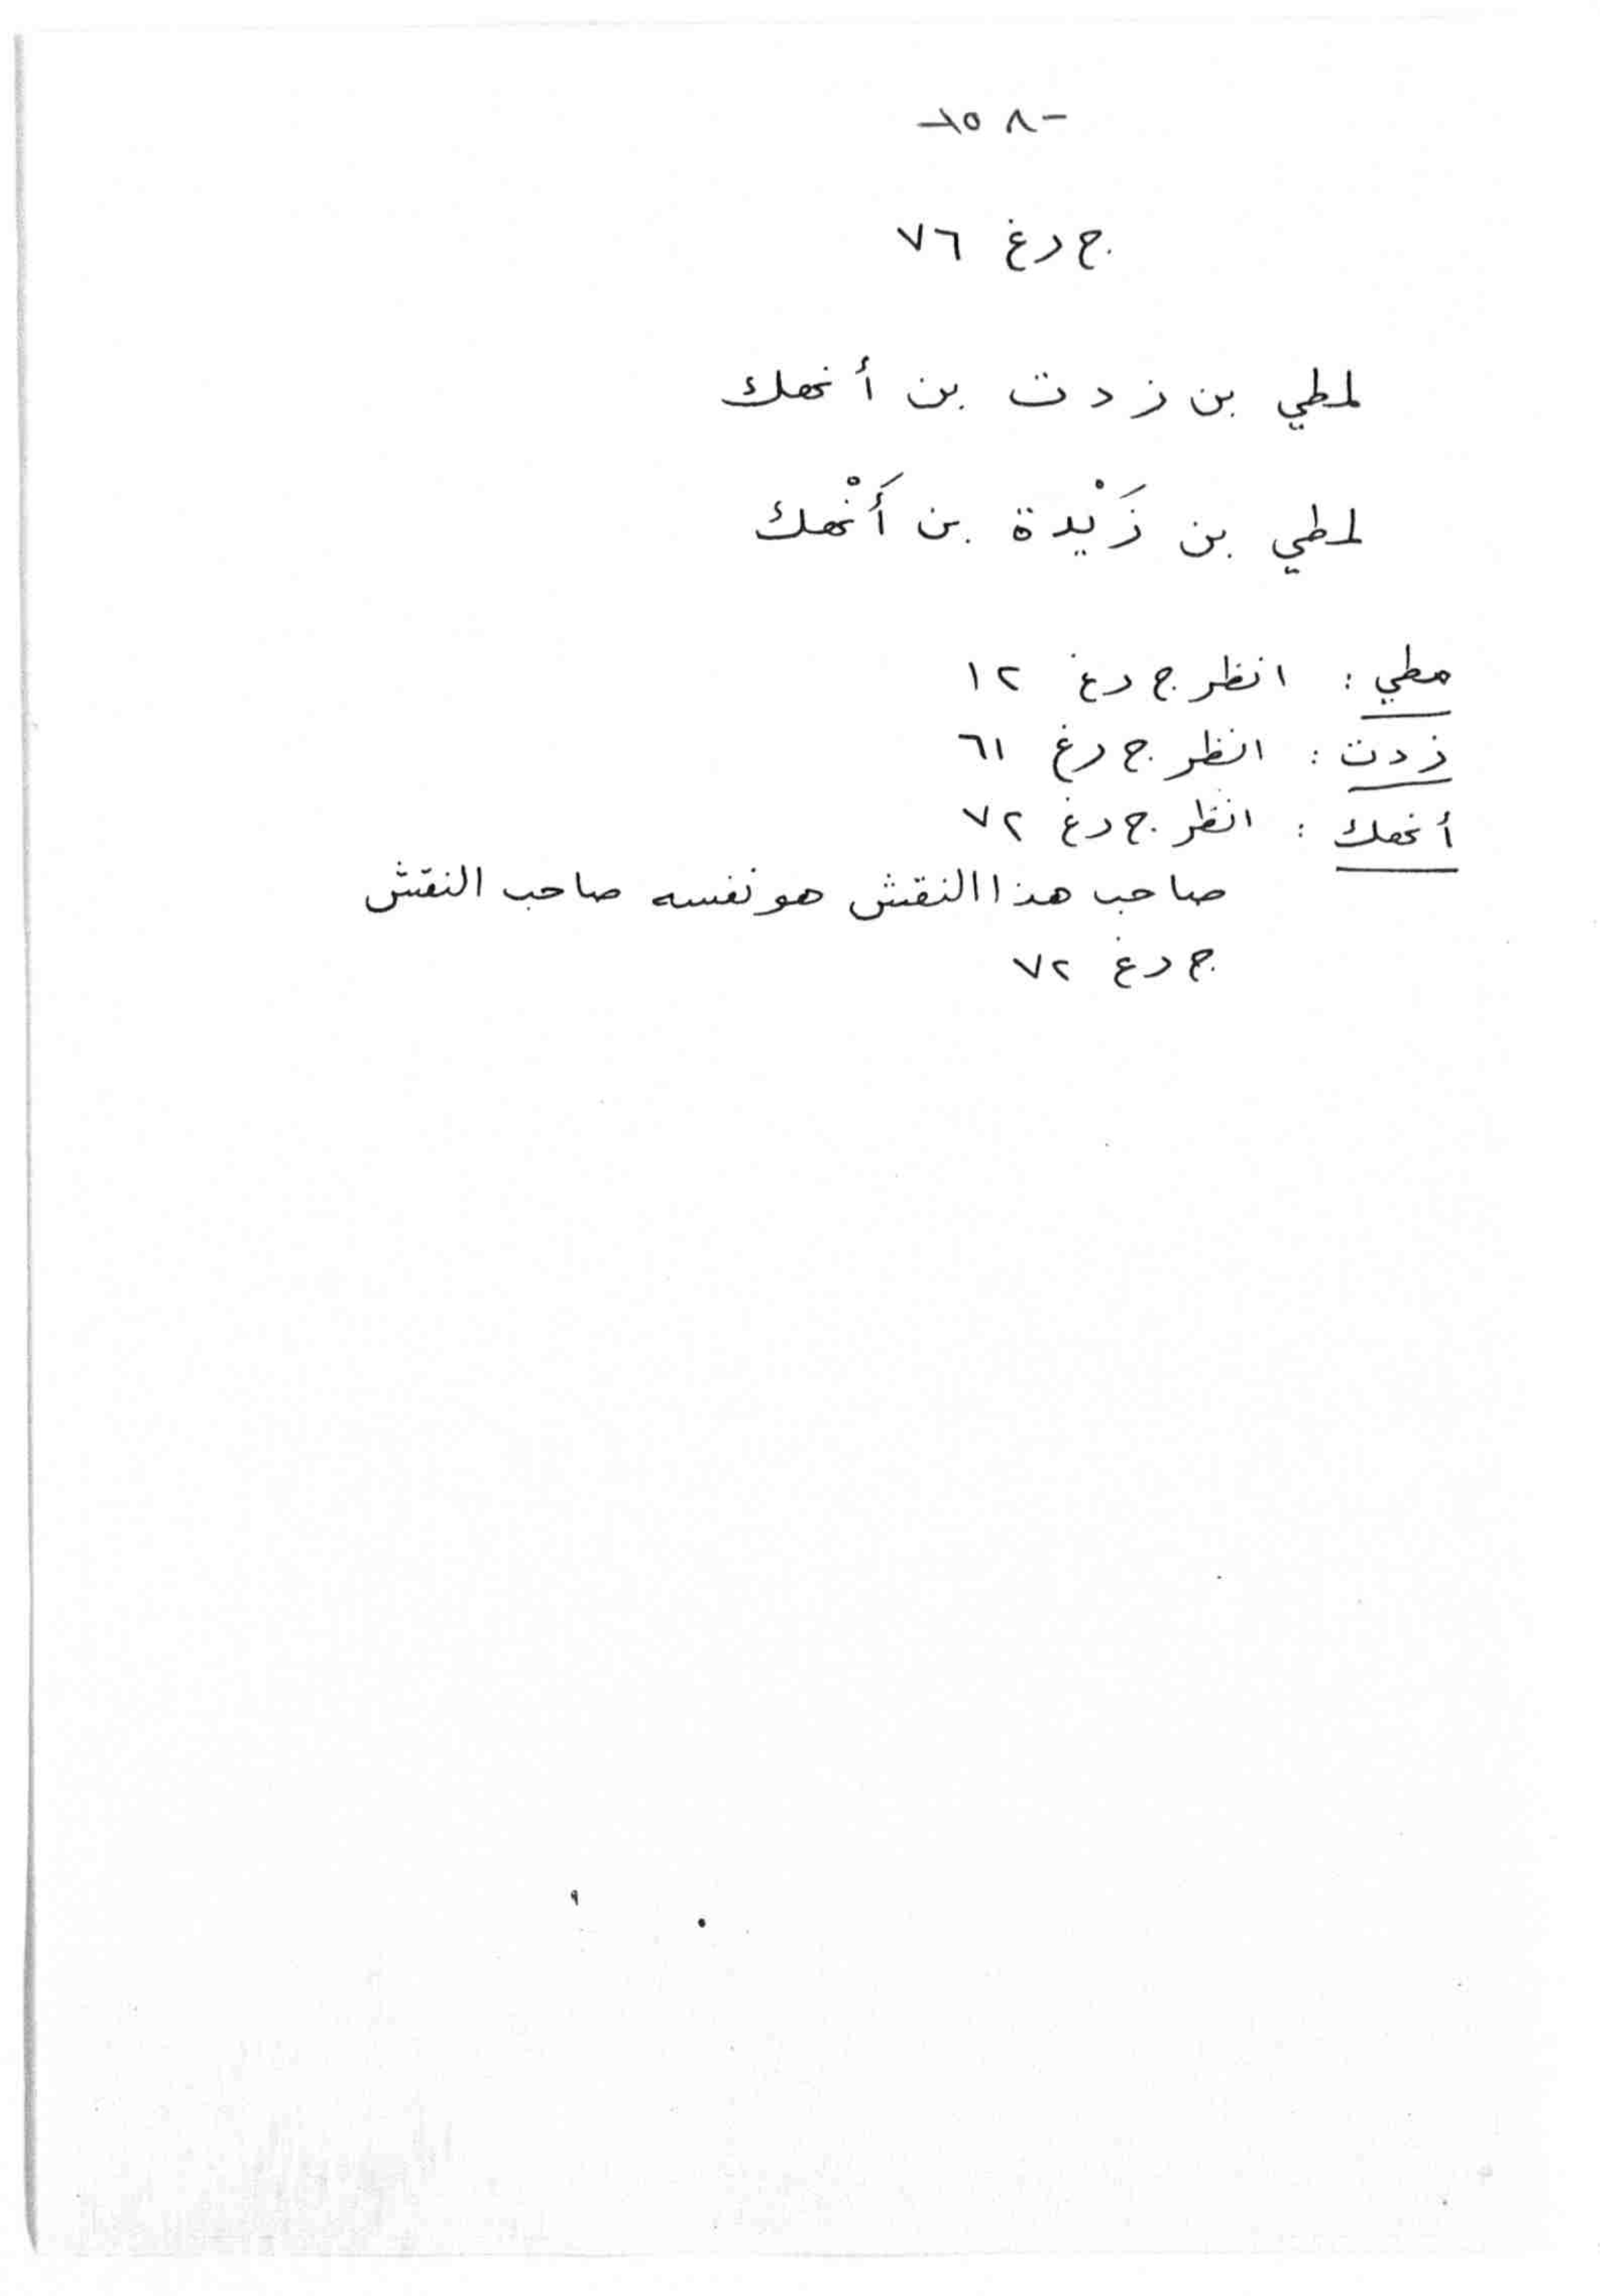 -٨٥-
ج درغ ٧٦
لمطي بن ز د ت بن أ نهك
لمطي بن زَيْدة بن أَنْهك
مطي : انظر ج درغ ١٢
ز دت : انظر ج درغ ٦١
أ نهك : انظر ج درغ ٧٢
صاحب هذا النقش هو نفسه صاحب النقش
ج درغ ٧٢